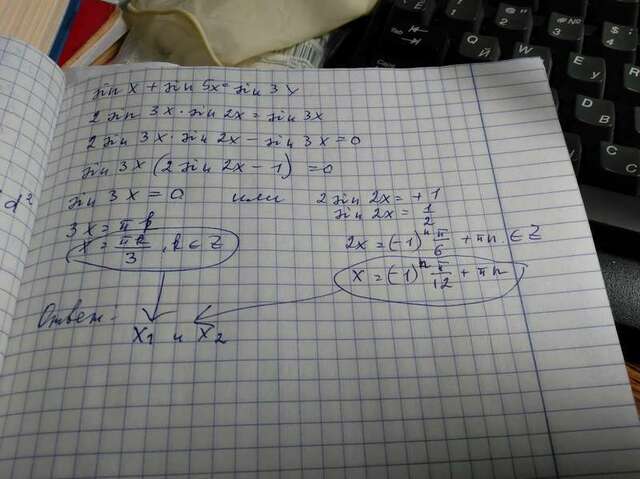 sin x + sin 5x = sin 3x
2 sin 3x · sin 2x = sin 3x
2 sin 3x · sin 2x - sin 3x = 0
sin 3x (2 sin 2x - 1) = 0
sin 3x = 0 или 2 sin 2x = + 1
sin 2x = 1/2
3x = πk
x = πk/3, k ∈ Z
2x = (-1)^n π/6 + πn, ∈ Z
x = (-1)^n π/12 + πn
Ответ:
x₁ и x₂